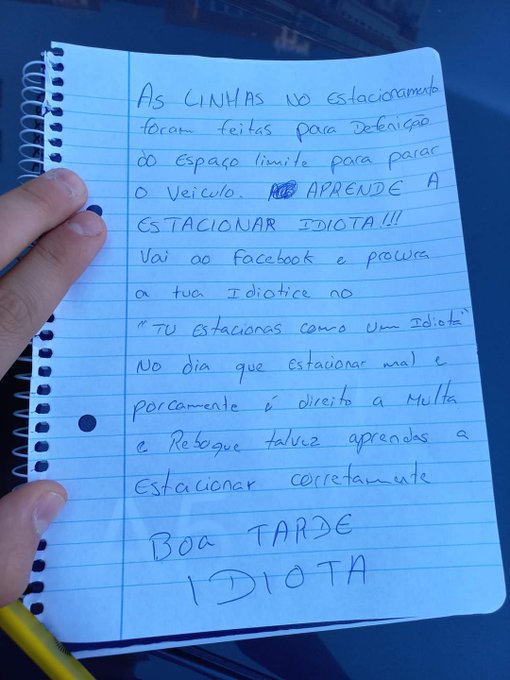 AS LINHAS NO Estacionamento
foram feitas para Defenição
do Espaço limite para parar
o Veiculo. APRENDE A
ESTACIONAR IDIOTA!!!
Vai ao facebook e procura
a tua Idiotice no
"TU Estacionas como um Idiota"
No dia que Estacionar mal e
porcamente é direito a Multa
e Reboque talvez aprendas a
Estacionar corretamente
Boa TARDE
IDIOTA